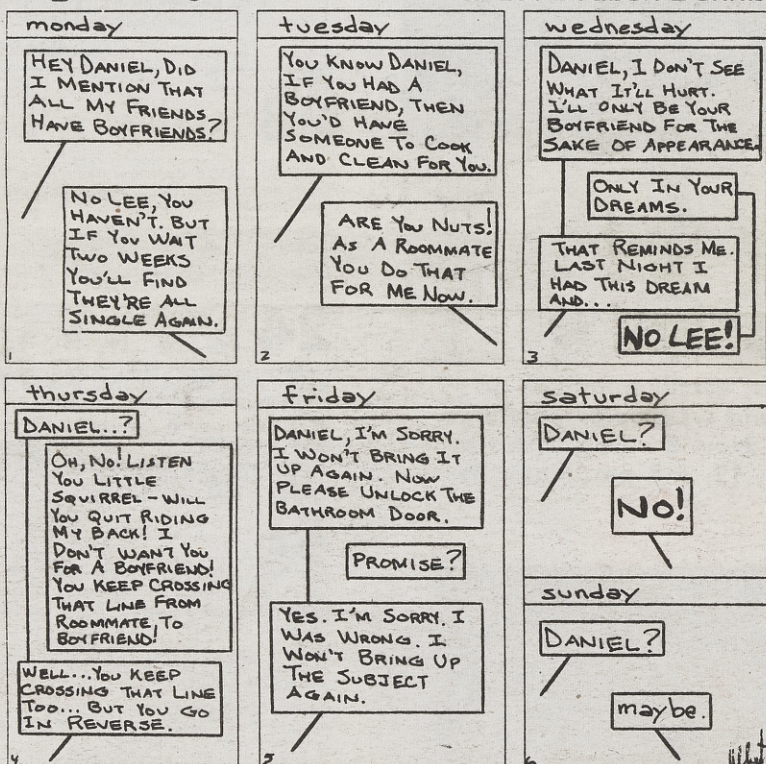 monday
HEY DANIEL, DID
I MENTION THAT
ALL MY FRIENDS
HAVE BOYFRIENDS?
NO LEE, YOU
HAVEN'T. BUT
IF YOU WAIT
TWO WEEKS
YOU'LL FIND
THEY'RE ALL
SINGLE AGAIN.
1
tuesday
YOU KNOW DANIEL,
IF YOU HAD A
BOYFRIEND, THEN
YOU'D HAVE
SOMEONE TO COOK
AND CLEAN FOR YOU.
ARE YOU NUTS!
AS A ROOMMATE
YOU DO THAT
FOR ME NOW.
2
wednesday
DANIEL, I DON'T SEE
WHAT IT'LL HURT.
I'LL ONLY BE YOUR
BOYFRIEND FOR THE
SAKE OF APPEARANCE.
ONLY IN YOUR
DREAMS.
THAT REMINDS ME.
LAST NIGHT I
HAD THIS DREAM
AND...
NO LEE!
3
thursday
DANIEL..?
OH, NO! LISTEN
YOU LITTLE
SQUIRREL - WILL
YOU QUIT RIDING
MY BACK! I
DON'T WANT YOU
FOR A BOYFRIEND!
YOU KEEP CROSSING
THAT LINE FROM
ROOMMATE, TO
BOYFRIEND!
WELL... YOU KEEP
CROSSING THAT LINE
TOO... BUT YOU GO
IN REVERSE.
4
friday
DANIEL, I'M SORRY.
I WON'T BRING IT
UP AGAIN. NOW
PLEASE UNLOCK THE
BATHROOM DOOR.
PROMISE?
YES. I'M SORRY. I
WAS WRONG. I
WON'T BRING UP
THE SUBJECT
AGAIN.
5
saturday
DANIEL?
NO!
sunday
DANIEL?
maybe.
6